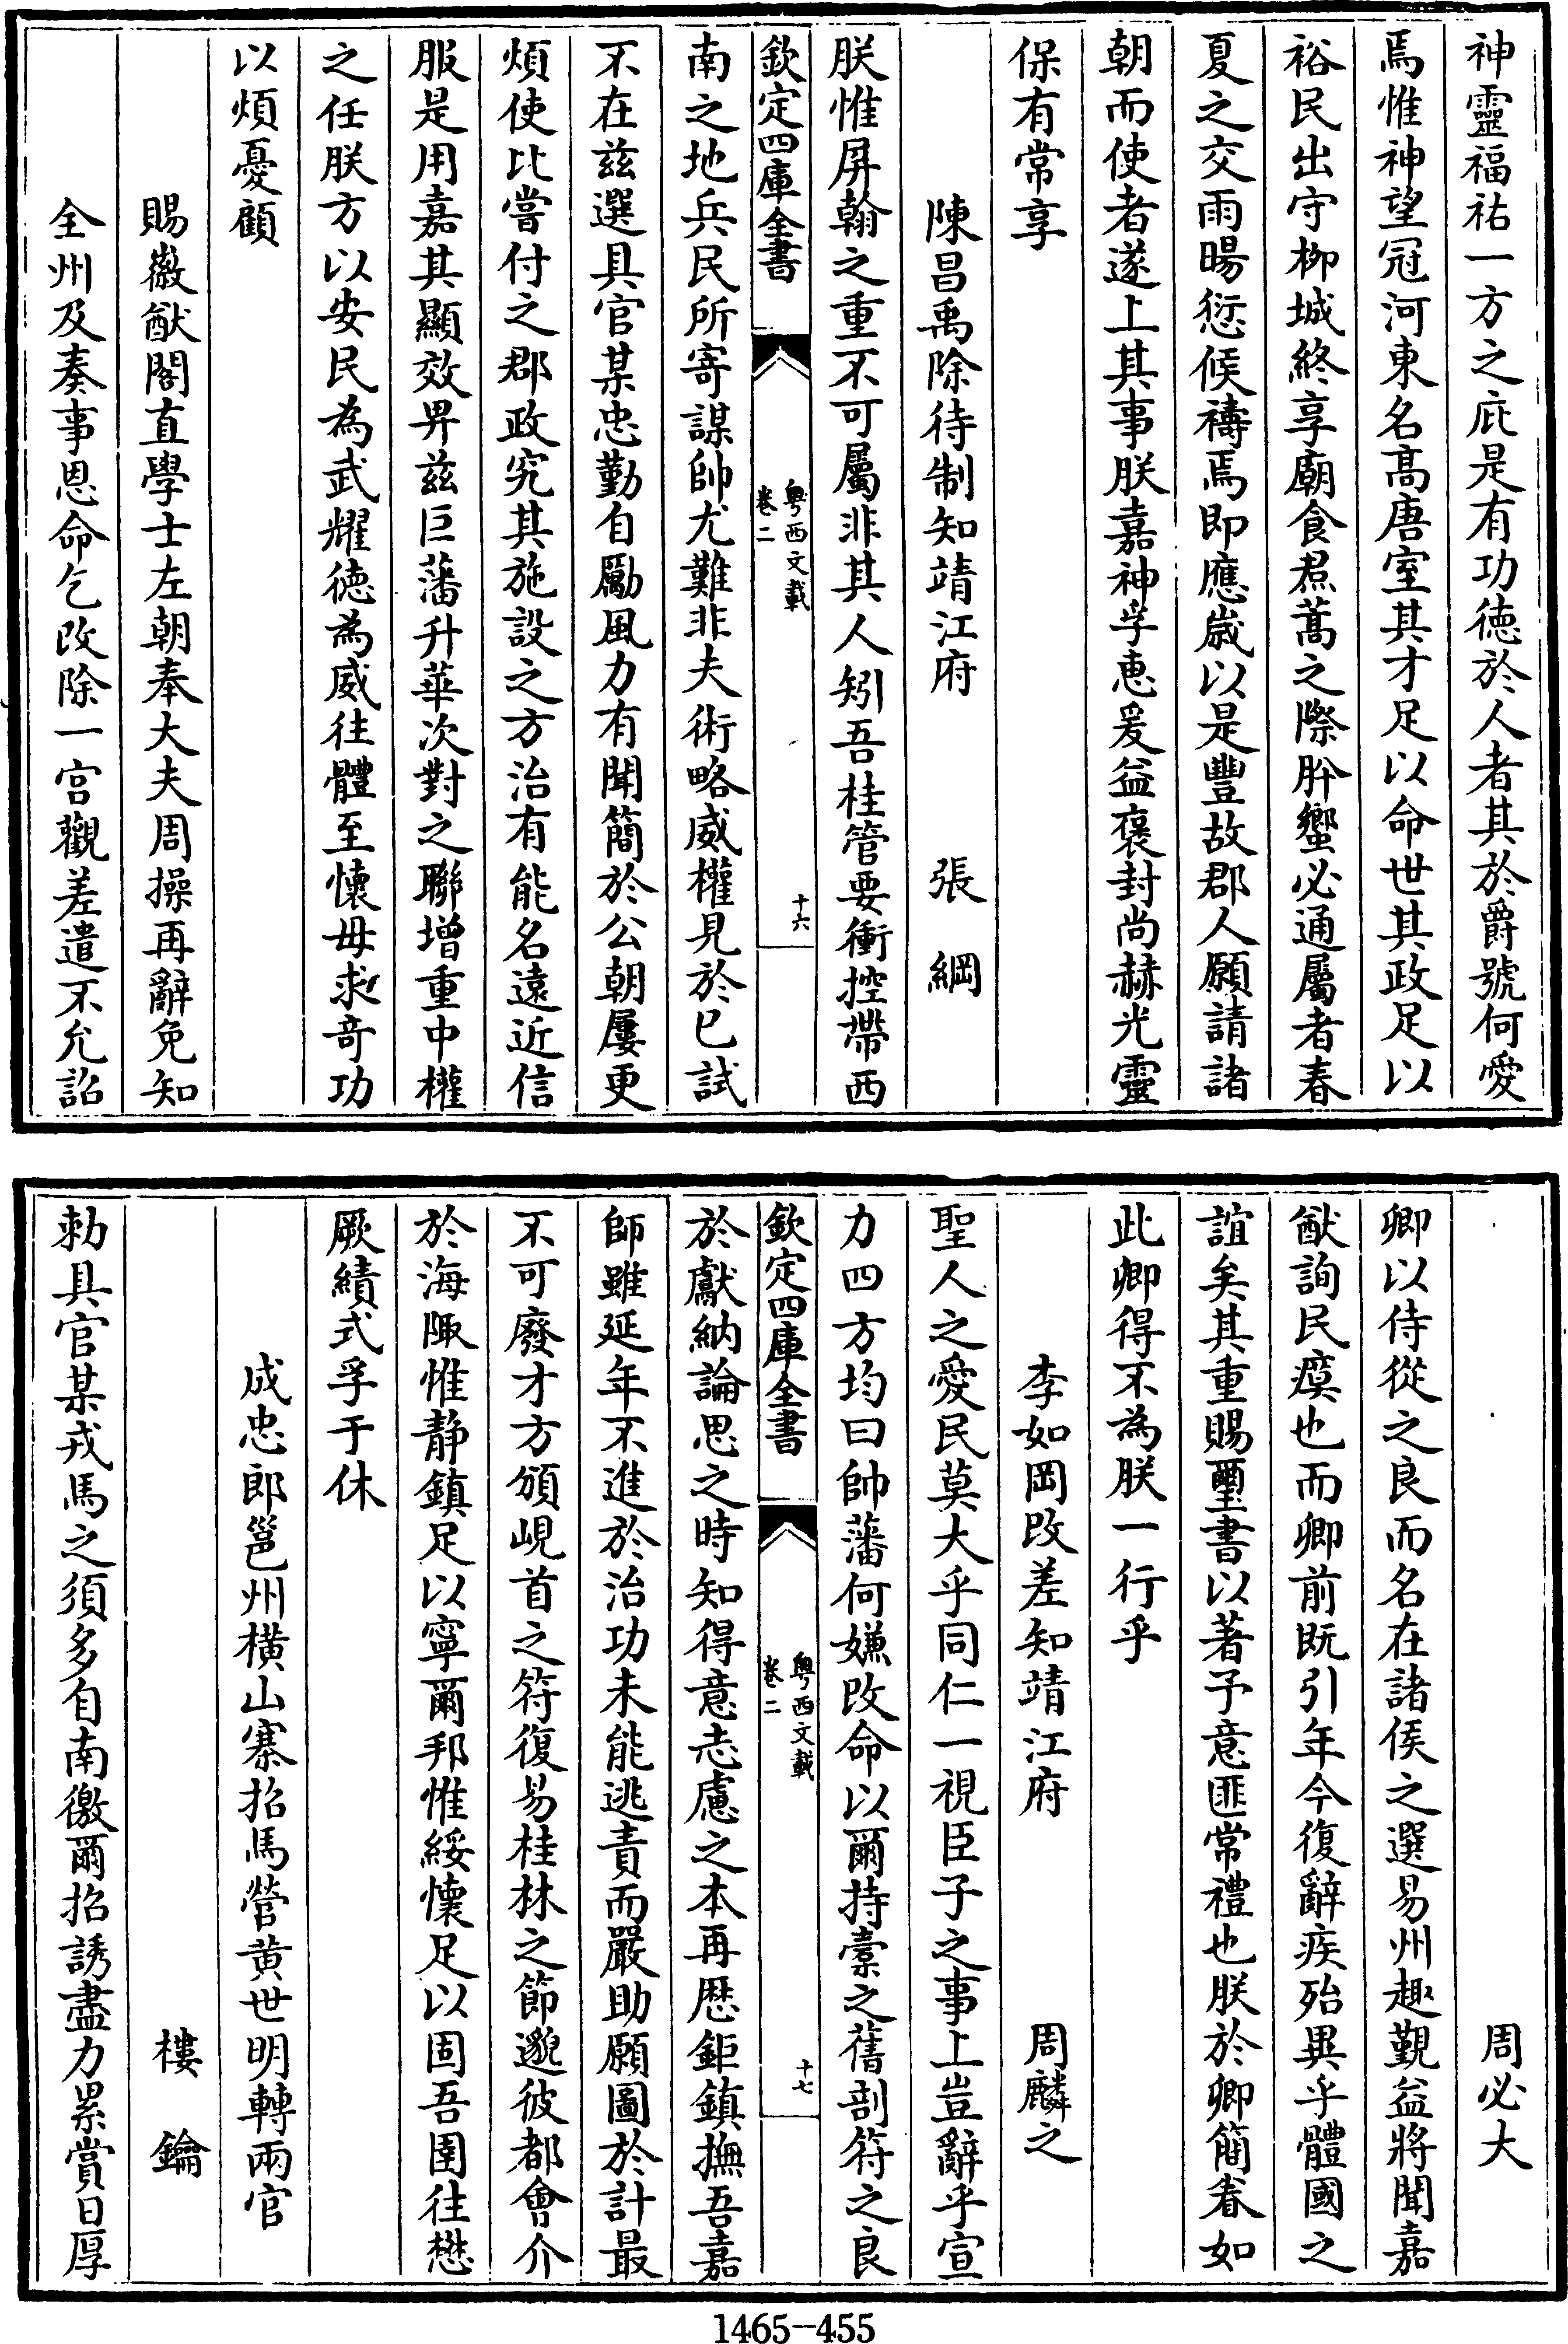 神靈福祐一方之庇是有功徳於人者其於爵號何愛
焉惟神望冠河東名髙唐室其才足以命世其政足以
裕民出守栁城終享廟食焄蒿之際肸蠁必通屬者春
夏之交雨暘愆候禱焉即應嵗以是豐故郡人願請諸
朝而使者遂上其事朕嘉神孚惠爰益褒封尚赫光靈
保有常享
陳昌禹除待制知靖江府　張綱
朕惟屏翰之重不可屬非其人矧吾桂管要衝控帶西
欽定四庫全書　粤西文載卷二　十六
南之地兵民所寄謀帥尤難非夫術略威權見於已試
不在兹選具官某忠勤自勵風力有聞簡於公朝屢更
煩使比嘗付之郡政究其施設之方治有能名遠近信
服是用嘉其顯效畀兹巨藩升華次對之聯增重中權
之任朕方以安民為武耀徳為威往體至懷毋求竒功
以煩憂顧
賜徽猷閣直學士左朝奉大夫周操再辭免知
全州及奏事恩命乞改除一宫觀差遣不允詔
周必大
卿以侍從之良而名在諸侯之選易州趣覲益將聞嘉
猷詢民瘼也而卿前既引年今復辭疾殆異乎體國之
誼矣其重賜璽書以著予意匪常禮也朕於卿簡眷如
此卿得不為朕一行乎
李如岡改差知靖江府　周麟之
聖人之愛民莫大乎同仁一視臣子之事上豈辭乎宣
力四方均曰帥藩何嫌改命以爾持橐之舊剖符之良
欽定四庫全書　粤西文載卷二　十七
於獻納論思之時知得意志慮之本再歴鉅鎮撫吾嘉
師雖延年不進於治功未能逃責而嚴助願圖於計最
不可廢才方頒峴首之符復易桂林之節邈彼都會介
於海陬惟静鎮足以寧爾邦惟綏懷足以固吾圉往懋
厥績式孚于休
成忠郎邕州横山寨招馬營黄世明轉兩官
樓鑰
勅具官某戎馬之須多自南徼爾招誘盡力累賞日厚
1465-455